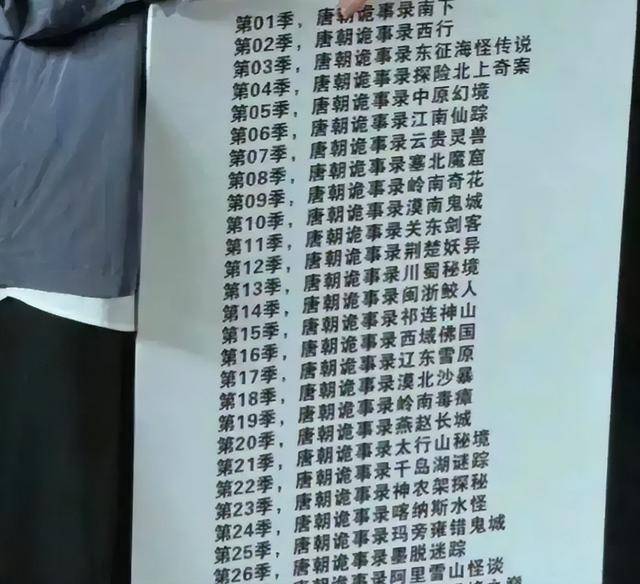 第01季，唐朝诡事录南下
第02季，唐朝诡事录西行
第03季，唐朝诡事录东征海怪传说
第04季，唐朝诡事录探险北上奇案
第05季，唐朝诡事录中原幻境
第06季，唐朝诡事录江南仙踪
第07季，唐朝诡事录云贵灵兽
第08季，唐朝诡事录塞北魔窟
第09季，唐朝诡事录岭南奇花
第10季，唐朝诡事录漠南鬼城
第11季，唐朝诡事录关东剑客
第12季，唐朝诡事录荆楚妖异
第13季，唐朝诡事录川蜀秘境
第14季，唐朝诡事录闽浙鲛人
第15季，唐朝诡事录祁连神山
第16季，唐朝诡事录西域佛国
第17季，唐朝诡事录辽东雪原
第18季，唐朝诡事录漠北沙暴
第19季，唐朝诡事录岭南毒瘴
第20季，唐朝诡事录燕赵长城
第21季，唐朝诡事录太行山秘境
第22季，唐朝诡事录千岛湖谜踪
第23季，唐朝诡事录神农架探秘
第24季，唐朝诡事录喀纳斯水怪
第25季，唐朝诡事录玛旁雍错鬼城
第26季，唐朝诡事录墨脱迷踪
唐朝诡事录阿里雪山怪谈